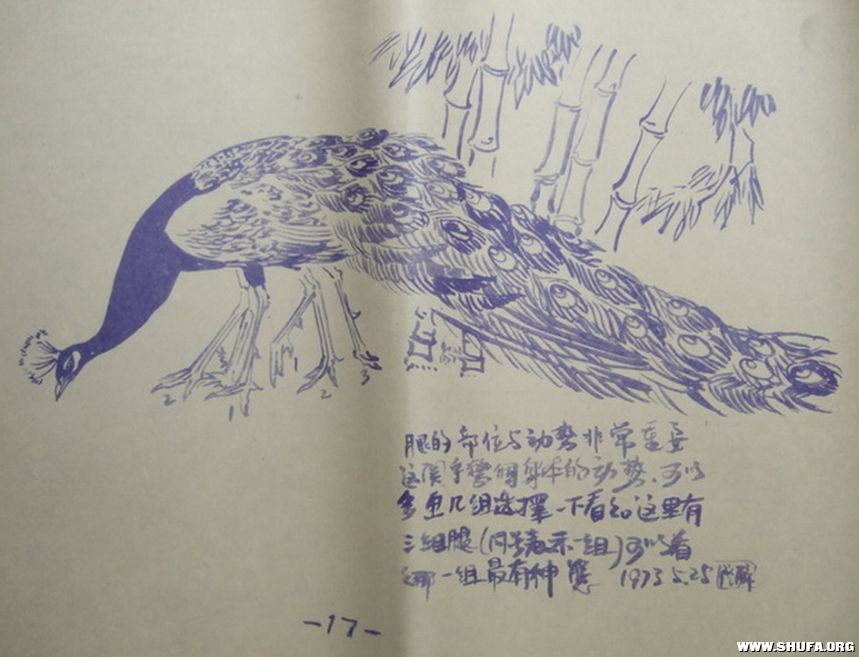 2
1
1
2
3
腿的部位与动势非常重要
这关乎整个身体的动势.可以
多画几组选择一下看如这里有
三组腿(同号表示一组)可以看
那一组最有神态 1973 5.25
-17-
WWW.SHUFA.ORG